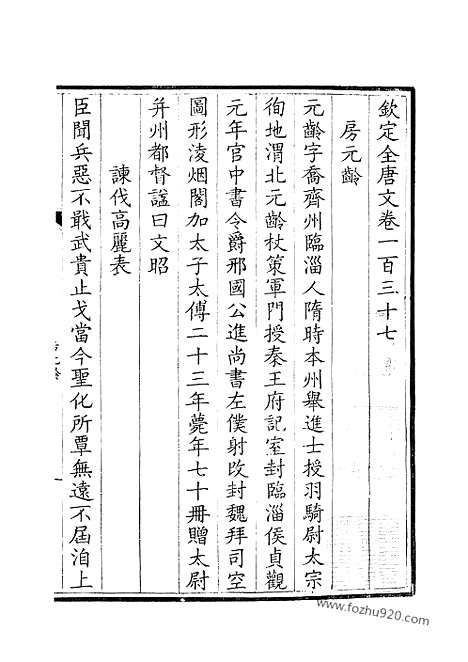 欽定全唐文卷一百三十七
房元齡
元齡字喬齊州臨淄人隋時本州舉進士授羽騎尉太宗
徇地渭北元齡杖策軍門授秦王府記室封臨淄侯貞觀
元年官中書令爵邢國公進尚書左僕射改封魏拜司空
圖形淩烟閣加太子太傅二十三年薨年七十冊贈太尉
并州都督諡曰文昭
諫伐高麗表
臣聞兵惡不戢武貴止戈當今聖化所覃無遠不屆洎上
www.fozhu920.com